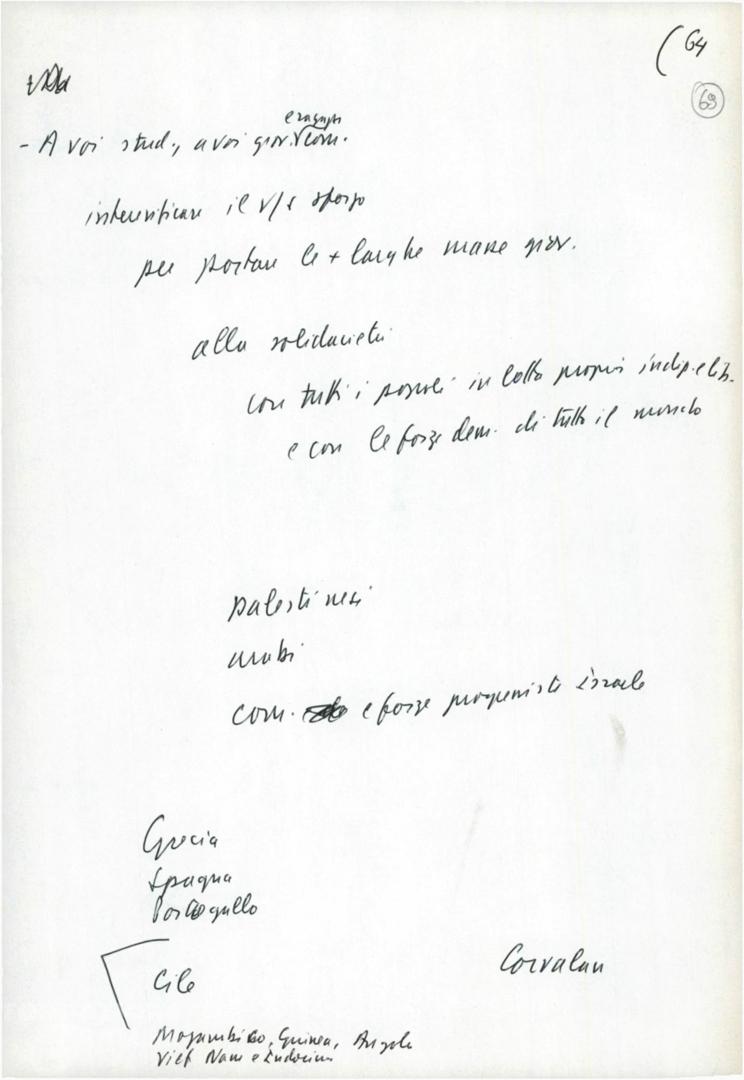 ( 64
69
e ragazzi
- A voi stud., a voi giov. com.
intensificare il v/s sforzo
per portare le + larghe masse giov.
alla solidarietà
con tutti i popoli in lotta propria indip. e lib.
e con le forze dem. di tutto il mondo
palestinesi
arabi
com. e forze progressiste israele
Grecia
Spagna
Portogallo
Cile
Corvalan
Mozambico, Guinea, Angola
Viet Nam e Indocina